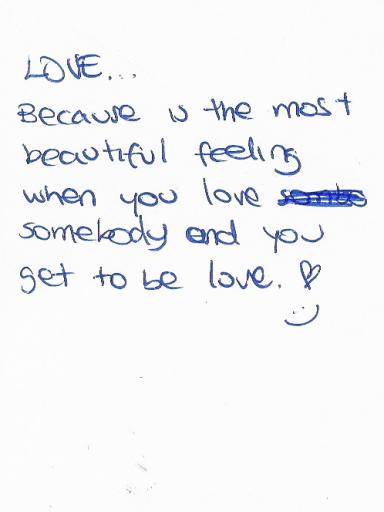 LOVE...
Because is the most
beautiful feeling
when you love
somebody and you
get to be love. ♡
:)